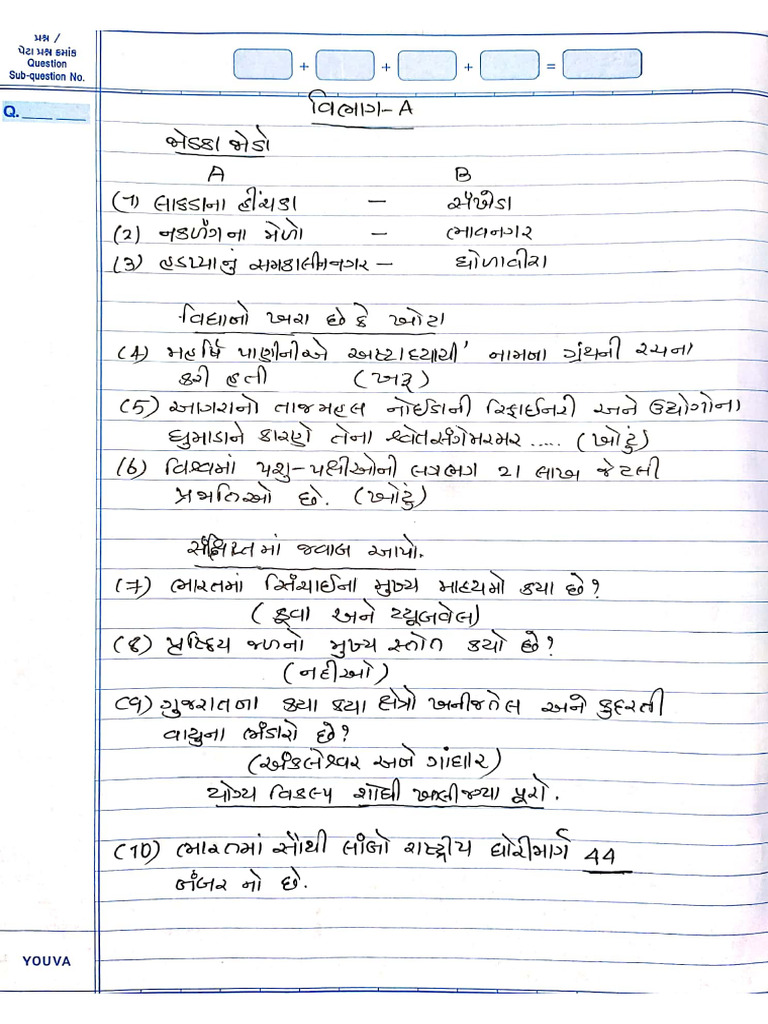 પ્રશ્ન /
પેટા પ્રશ્ન ક્રમાંક
Question
Sub-question No.
+ + + =
Q.
વિભાગ-A
જોડકા જોડો
A B
(1) લાકડાના હીંચકા - સંખેડા
(2) નકળંગના મેળો - ભાવનગર
(3) હડપ્પાનું સમકાલીનનગર - ધોળાવીરા
વિધાનો ખરા છે કે ખોટા
(4) મહર્ષિ પાણીનીએ અષ્ટાધ્યાયી' નામના ગ્રંથની રચના
કરી હતી (ખરૂ)
(5) આગરાનો તાજમહલ નોઈડાની રિફાઈનરી અને ઉદ્યોગોના
ધુમાડાને કારણે તેના શ્વેતસંગેમરમર ..... (ખોટું)
(6) વિશ્વમાં પશુ-પક્ષીઓની લગભગ 21 લાખ જેટલી
પ્રજાતિઓ છે. (ખોટું)
સંક્ષિપ્તમાં જવાબ આપો.
(7) ભારતમાં સિંચાઈના મુખ્ય માધ્યમો કયા છે?
(કૂવા અને ટ્યૂબવેલ)
(8) પૃષ્ઠિય જળનો મુખ્ય સ્ત્રોત કયો છે?
(નદીઓ)
(9) ગુજરાતના કયા કયા ક્ષેત્રો ખનીજતેલ અને કુદરતી
વાયુના ભંડારો છે?
(અંકલેશ્વર અને ગાંધાર)
યોગ્ય વિકલ્પ શોધી ખાલીજગ્યા પૂરો.
(10) ભારતમાં સૌથી લાંબો રાષ્ટ્રીય ધોરીમાર્ગ 44
નંબર નો છે.
YOUVA